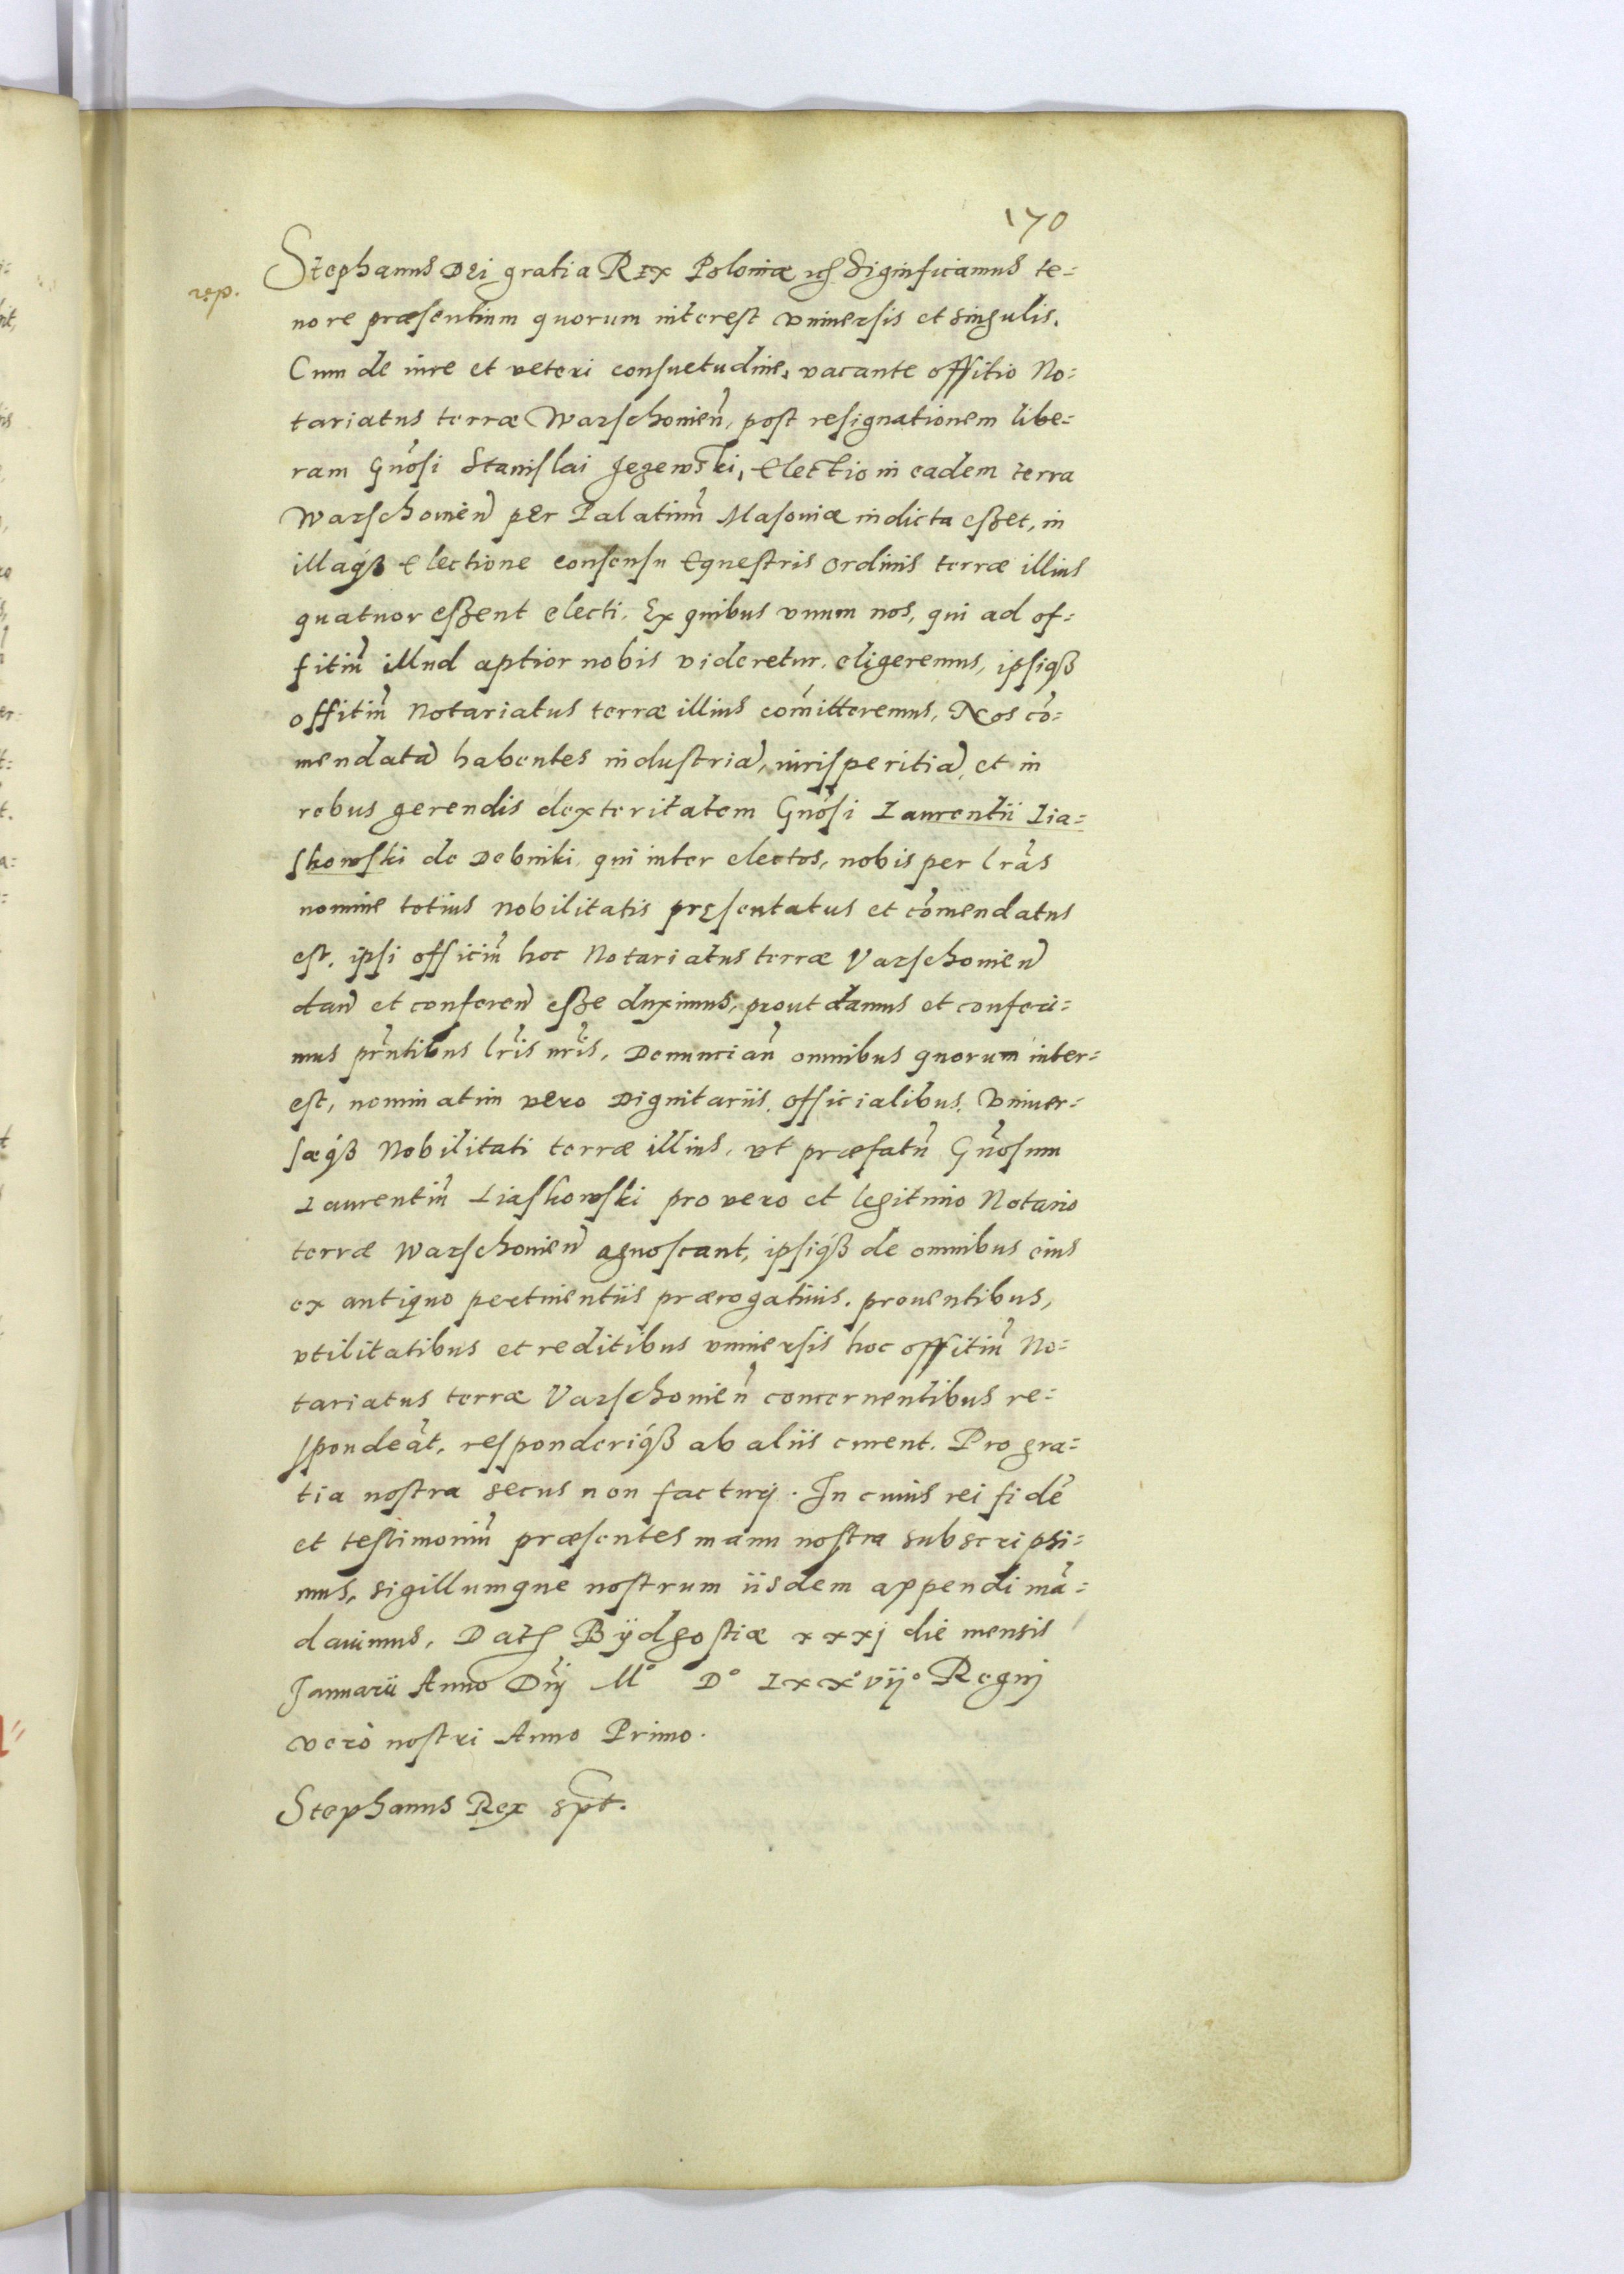 170
rep.
Stephanus Dei gratia Rex Poloniæ etc Significamus te=
nore præsentium quorum interest vniuersis et singulis.
Cum de iure et veteri consuetudine, vacante offitio No=
tariatus terræ Warschouień, post resignationem libe=
ram Gnosi Stanislai Jezewski, Electio in eadem terra
Warschouień per Palatinū Masouiæ indicta esset, in
illaq́ꝫ Electione consensu Equestris ordinis terræ illius
quatuor essent electi. Ex quibus vnum nos, qui ad of=
fitiū illud aptior nobis videretur, eligeremus, ipsiqꝫ
offitiū Notariatus terræ illius com̄itteremus, Nos cō=
mendatā habentes industriā, iurisperitiā, et in
rebus gerendis dexteritatem Gnōsi Laurentii Lia=
skowski de Debniki, qui inter electos, nobis per lrās
nomine totius Nobilitatis pręsentatus et cōmendatus
est, ipsi officiū hoc Notariatus terræ Varschouień
dań et confereń esse duximus, prout damus et conferi=
mus prn̄tibus lrīs nrīs, Denunciań omnibus quorum inter=
est, nominatim vero Dignitariis, officialibus, Vniuer=
sæq́ꝫ Nobilitati terræ illius, vt præfatū Gnōsum
Laurentiū Liaskowski pro vero et legitimo Notario
terræ Warschouień agnoscant, ipsiq́ꝫ de omnibus eius
ex antiquo pertinentiis prærogatiuis, prouentibus,
vtilitatibus et reditibus vniuersis hoc offitiū No=
tariatus terræ Varschouień concernentibus re=
spondeāt, responderiq́ꝫ ab aliis curent. Pro gra=
tia nostra secus non facturj. In cuius rei fidē
et testimoniū præsentes manu nostra subscripsi=
mus, sigillumque nostrum iisdem appendi mā=
dauimus. Datꝭ Bÿdgostiæ xxxj die mensis
Januarii Anno Dn̄j Mº Dº Lxxºvijº Regnj
verò nostri Anno Primo.
Stephanus Rex spt.